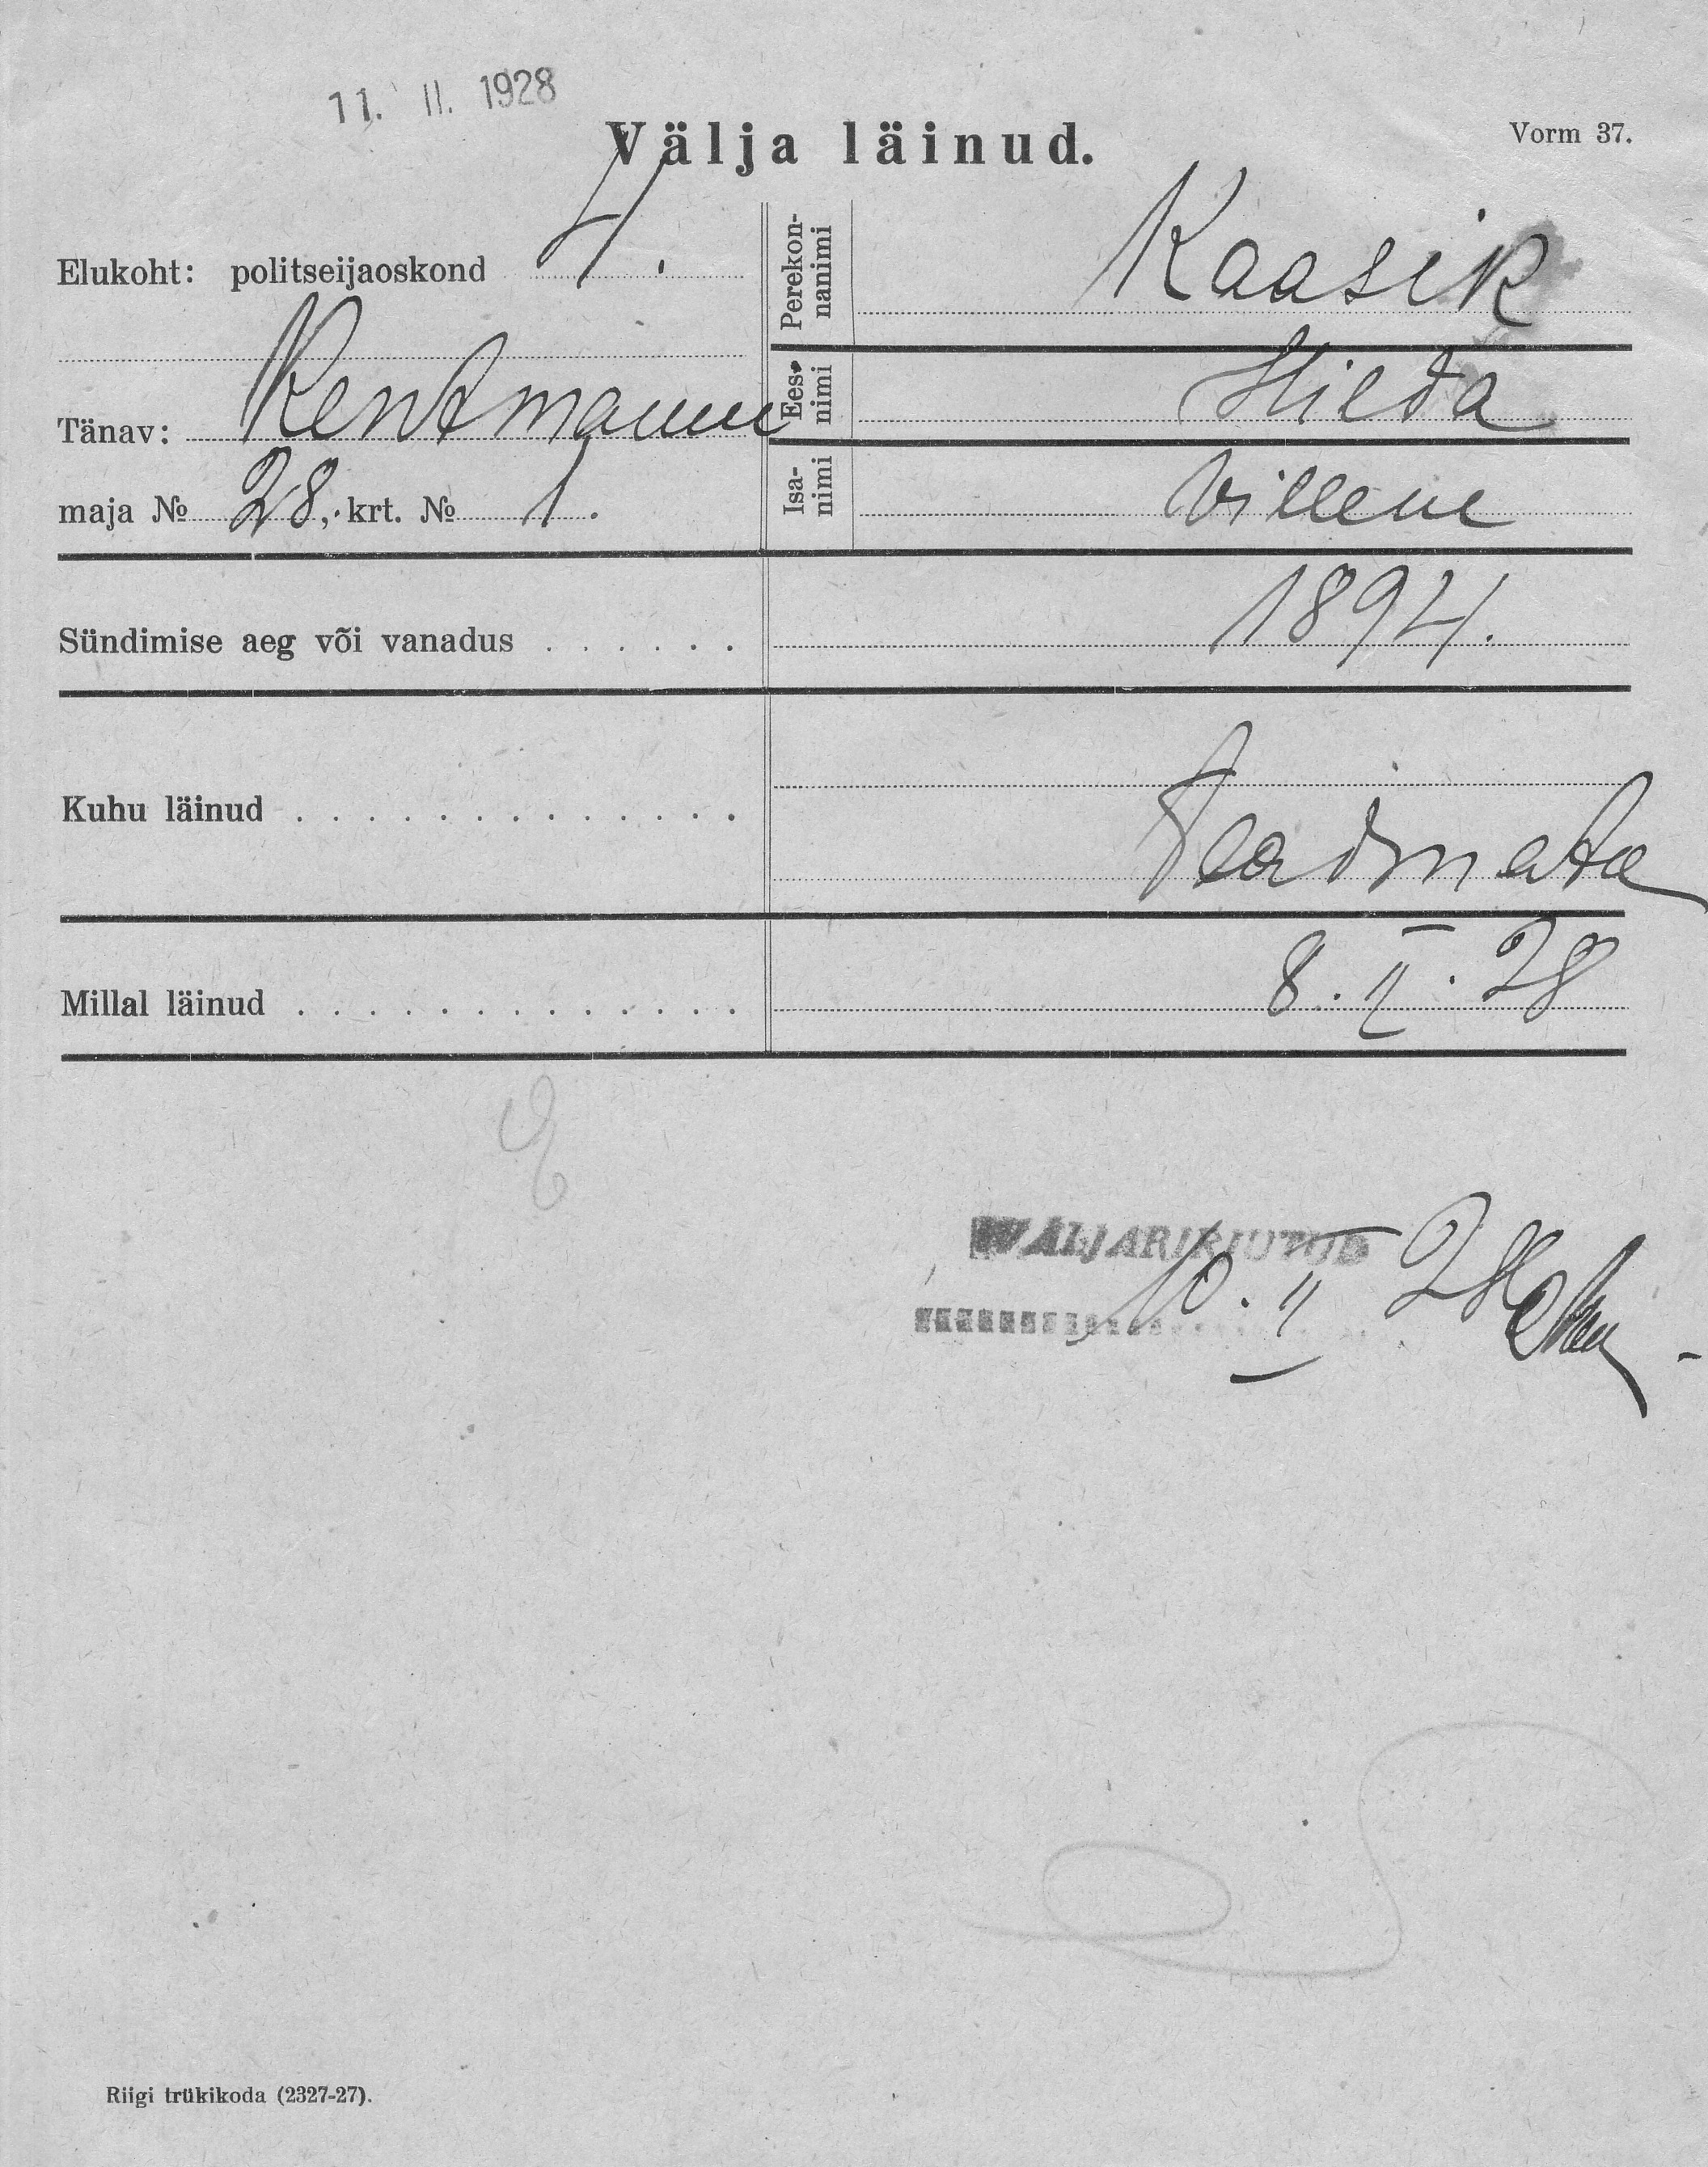 11. II. 1928
Välja läinud.
Vorm 37.
Elukoht: politseijaoskond 4.
Tänav: Kentmanni
maja № 28, krt. № 1.
Perekon-
nanimi
Kaasik
Ees-
nimi
Hilda
Isa-
nimi
Villem
Sündimise aeg või vanadus . . . . . . 1894.
Kuhu läinud . . . . . . . . . . . . . Teadmata
Millal läinud . . . . . . . . . . . . . 8. II. 28
WÄLJAKIRJUTUD
10. II 28
Riigi trükikoda (2327-27).